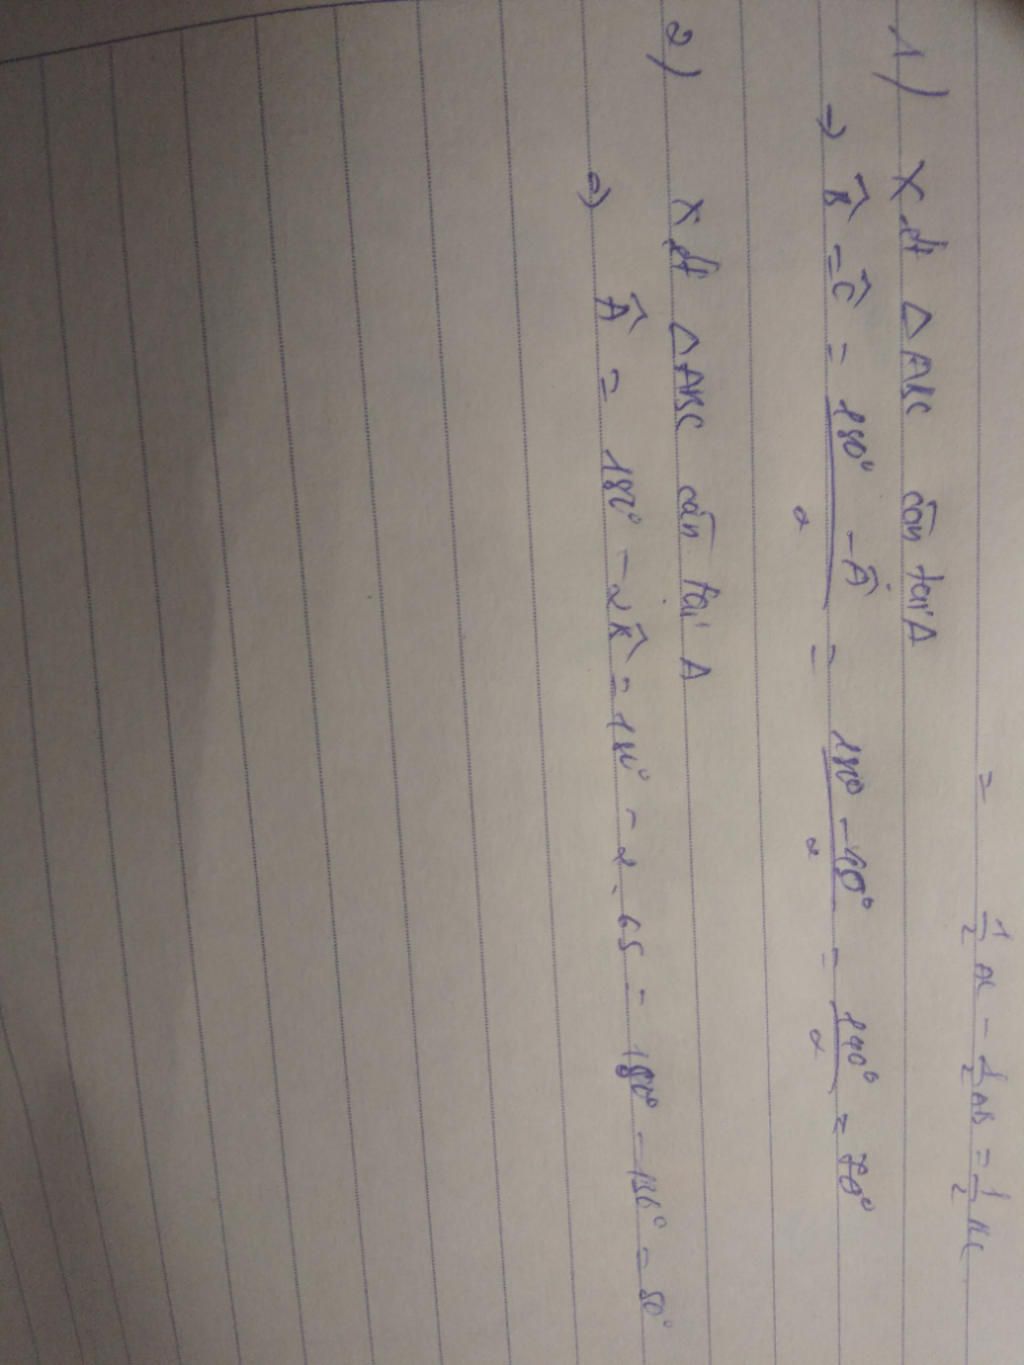 = 1/2 AC - 1/2 AB = 1/2 BC
1) Xét △ABC cân tại A
=> B̂ = Ĉ = (180° - Â)/2 = (180° - 40°)/2 = 140°/2 = 70°
2) Xét △ABC cân tại A
=> Â = 180° - 2B̂ = 180° - 2.65 = 180° - 130° = 50°